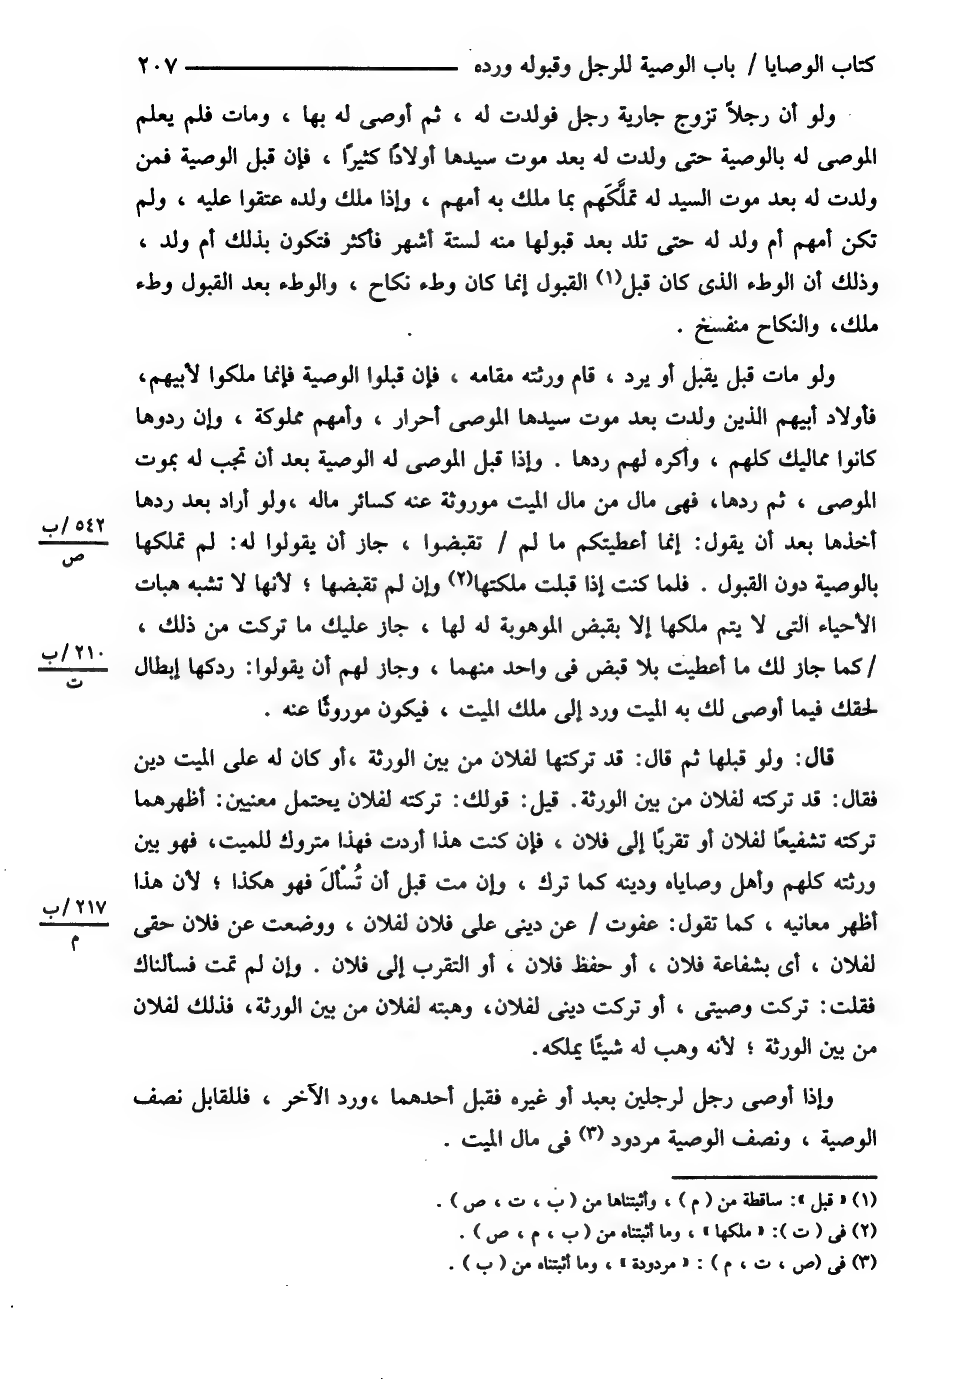 كتاب الوصايا / باب الوصية للرجل وقبوله ورده ــــــــ ٢٠٧
ولو أن رجلاً تزوج جارية رجل فولدت له ، ثم أوصى له بها ، ومات فلم يعلم
الموصى له بالوصية حتى ولدت له بعد موت سيدها أولادًا كثيرًا ، فإن قبل الوصية فمن
ولدت له بعد موت السيد له تملَّكَهم بما ملك به أمهم ، وإذا ملك ولده عتقوا عليه ، ولم
تكن أمهم أم ولد له حتى تلد بعد قبولها منه لستة أشهر فأكثر فتكون بذلك أم ولد ،
وذلك أن الوطء الذى كان قبل(١) القبول إنما كان وطء نكاح ، والوطء بعد القبول وطء
ملك، والنكاح منفسخ .
ولو مات قبل يقبل أو يرد ، قام ورثته مقامه ، فإن قبلوا الوصية فإنما ملكوا لأبيهم،
فأولاد أبيهم الذين ولدت بعد موت سيدها الموصى أحرار ، وأمهم مملوكة ، وإن ردوها
كانوا مماليك كلهم ، وأكره لهم ردها . وإذا قبل الموصى له الوصية بعد أن تجب له بموت
الموصى ، ثم ردها، فهى مال من مال الميت موروثة عنه كسائر ماله ،ولو أراد بعد ردها
أخذها بعد أن يقول: إنما أعطيتكم ما لم / تقبضوا ، جاز أن يقولوا له: لم تملكها
٥٤٢ /ب
ص
بالوصية دون القبول . فلما كنت إذا قبلت ملكتها(٢) وإن لم تقبضها ؛ لأنها لا تشبه هبات
الأحياء التى لا يتم ملكها إلا بقبض الموهوبة له لها ، جاز عليك ما تركت من ذلك ،
/ كما جاز لك ما أعطيت بلا قبض فى واحد منهما ، وجاز لهم أن يقولوا: ردكها إبطال
٢١٠ /ب
ت
لحقك فيما أوصى لك به الميت ورد إلى ملك الميت ، فيكون موروثًا عنه .
قال: ولو قبلها ثم قال: قد تركتها لفلان من بين الورثة ،أو كان له على الميت دين
فقال: قد تركته لفلان من بين الورثة. قيل: قولك: تركته لفلان يحتمل معنيين: أظهرهما
تركته تشفيعًا لفلان أو تقربًا إلى فلان ، فإن كنت هذا أردت فهذا متروك للميت، فهو بين
ورثته كلهم وأهل وصاياه ودينه كما ترك ، وإن مت قبل أن تُسْألَ فهو هكذا ؛ لأن هذا
أظهر معانيه ، كما تقول: عفوت / عن دينى على فلان لفلان ، ووضعت عن فلان حقى
٢١٧ /ب
م
لفلان ، أى بشفاعة فلان ، أو حفظ فلان ، أو التقرب إلى فلان . وإن لم تمت فسألناك
فقلت: تركت وصيتى ، أو تركت دينى لفلان، وهبته لفلان من بين الورثة، فذلك لفلان
من بين الورثة ؛ لأنه وهب له شيئًا يملكه.
وإذا أوصى رجل لرجلين بعبد أو غيره فقبل أحدهما ،ورد الآخر ، فللقابل نصف
الوصية ، ونصف الوصية مردود (٣) فى مال الميت .
(١) « قبل »: ساقطة من ( م ) ، وأثبتناها من ( ب ، ت ، ص ) .
(٢) فى ( ت ): « ملكها » ، وما أثبتناه من ( ب ، م ، ص ) .
(٣) فى (ص ، ت ، م ) : « مردودة » ، وما أثبتناه من ( ب ) .